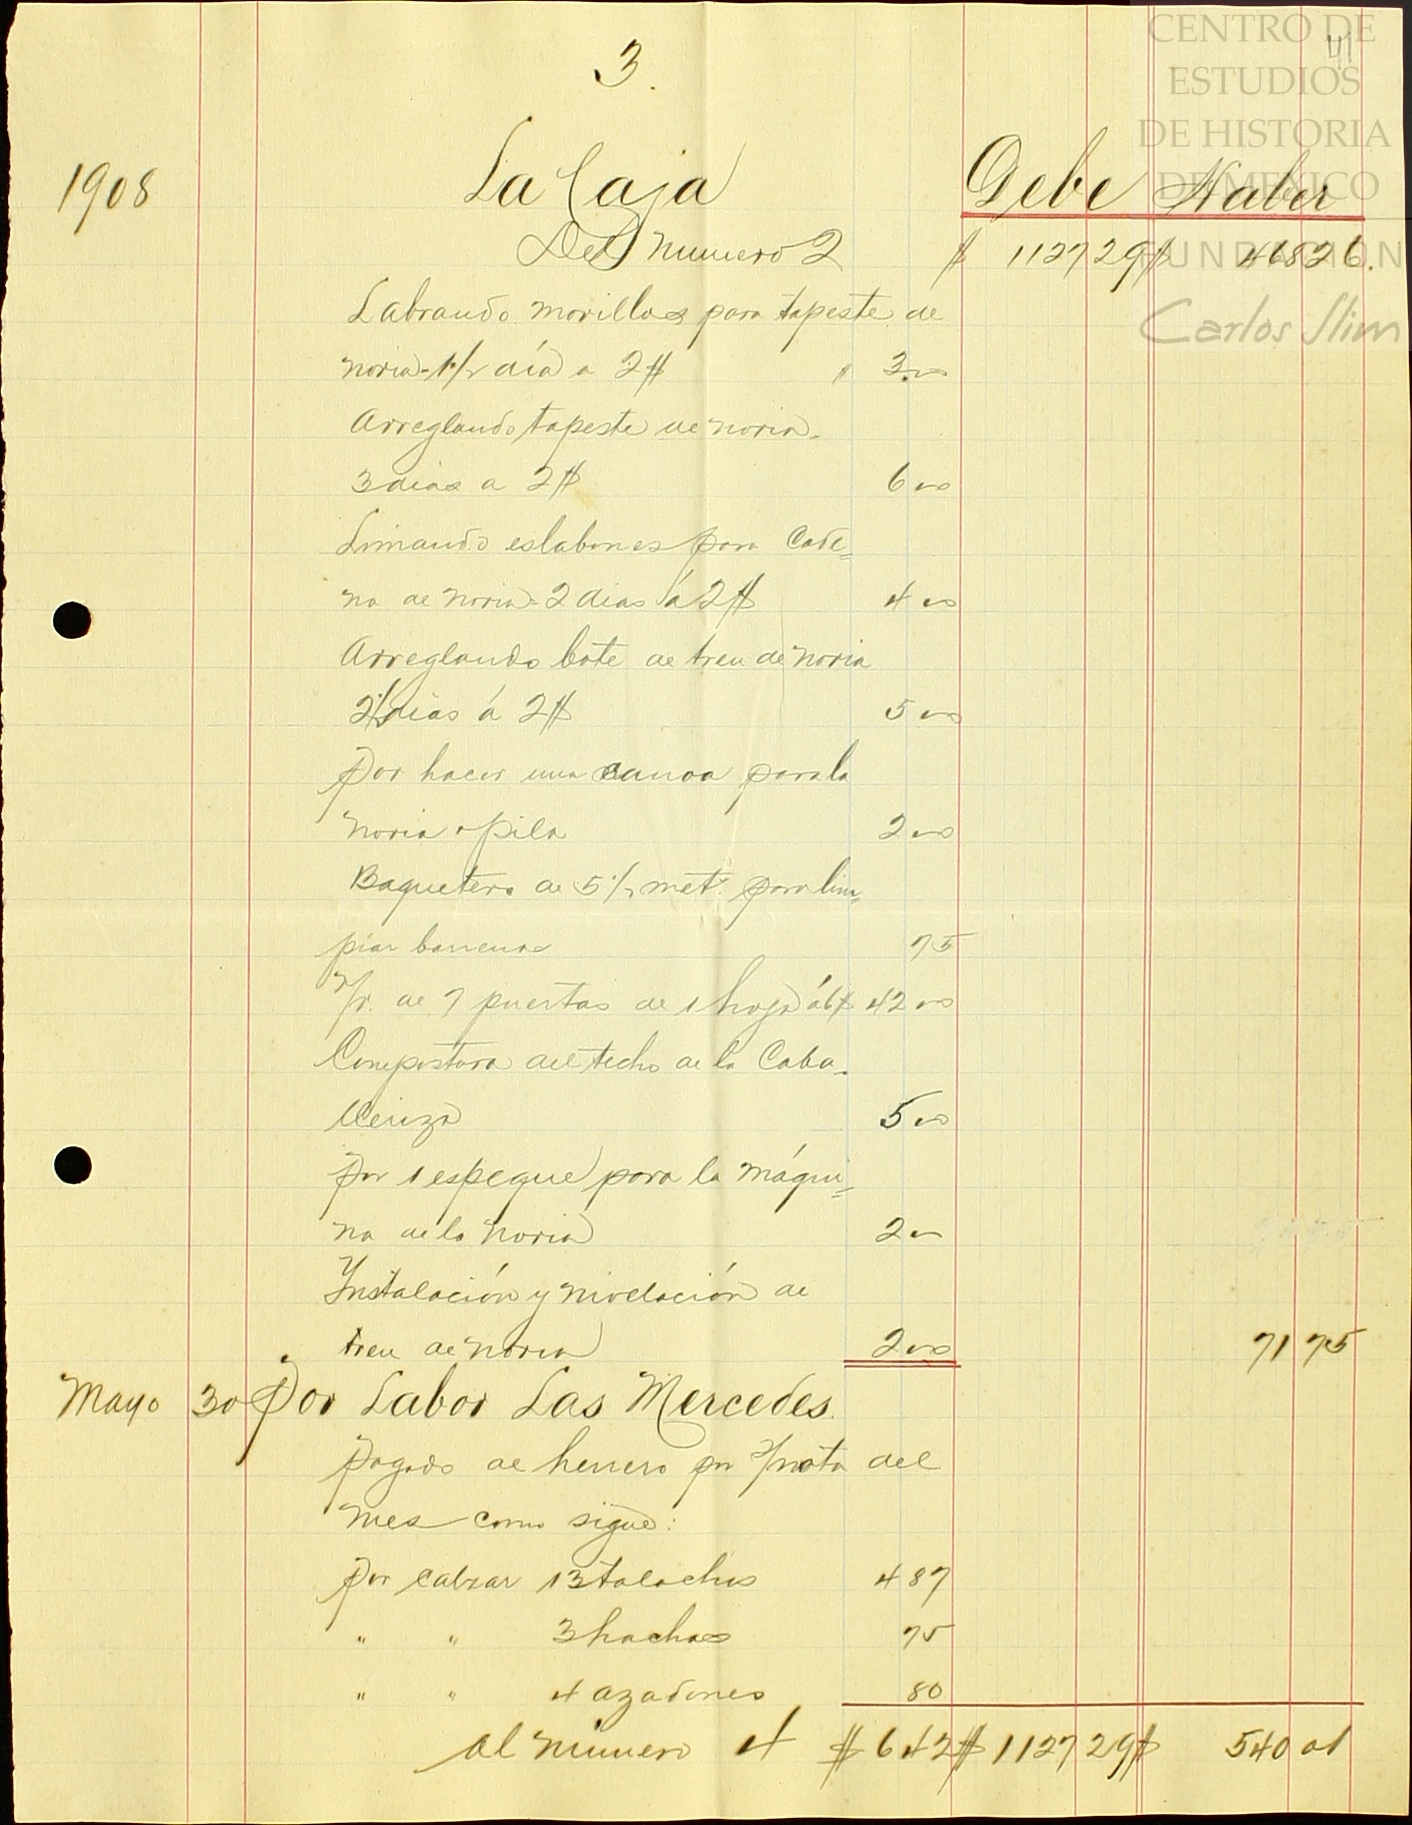 CENTRO DE
ESTUDIOS
DE HISTORIA
DE MEXICO
FUNDACION
Carlos Slim
41
3.
1908 La Caja Debe Haber
Del numero 2 $ 1127 29 $ 468 26.
Labrando morillos para tapeste de
noria - 1 1/2 día a 2$ " 3.00
Arreglando tapeste de noria.
3 dias a 2$ 6 00
Limando eslabones para Cade=
na de noria - 2 dias á 2$ 4 00
Arreglando bote de tren de noria
2 1/2 dias á 2$ 5 00
Por hacer una canoa para la
noria o pila 2 00
Baquetero de 5 1/2 met. para lim=
piar barrenos 75
de 7 puertas de 1 hoja á 6$ 42 00
Compostura del techo de la Caba-
lleriza 5 00
Por 1 espeque para la máqui=
na de la noria 2 00
Instalación y nivelación de
tren de noria 2 00 71 75
Mayo 30 Por Labor Las Mercedes.
Pagado de herrero pr nota del
mes como sigue:
Por calzar 13 talachos 4 87
" " 3 hachas 75
" " 4 azadones 80
Al número 4 $ 6 42 $ 1127 29 $ 540 01